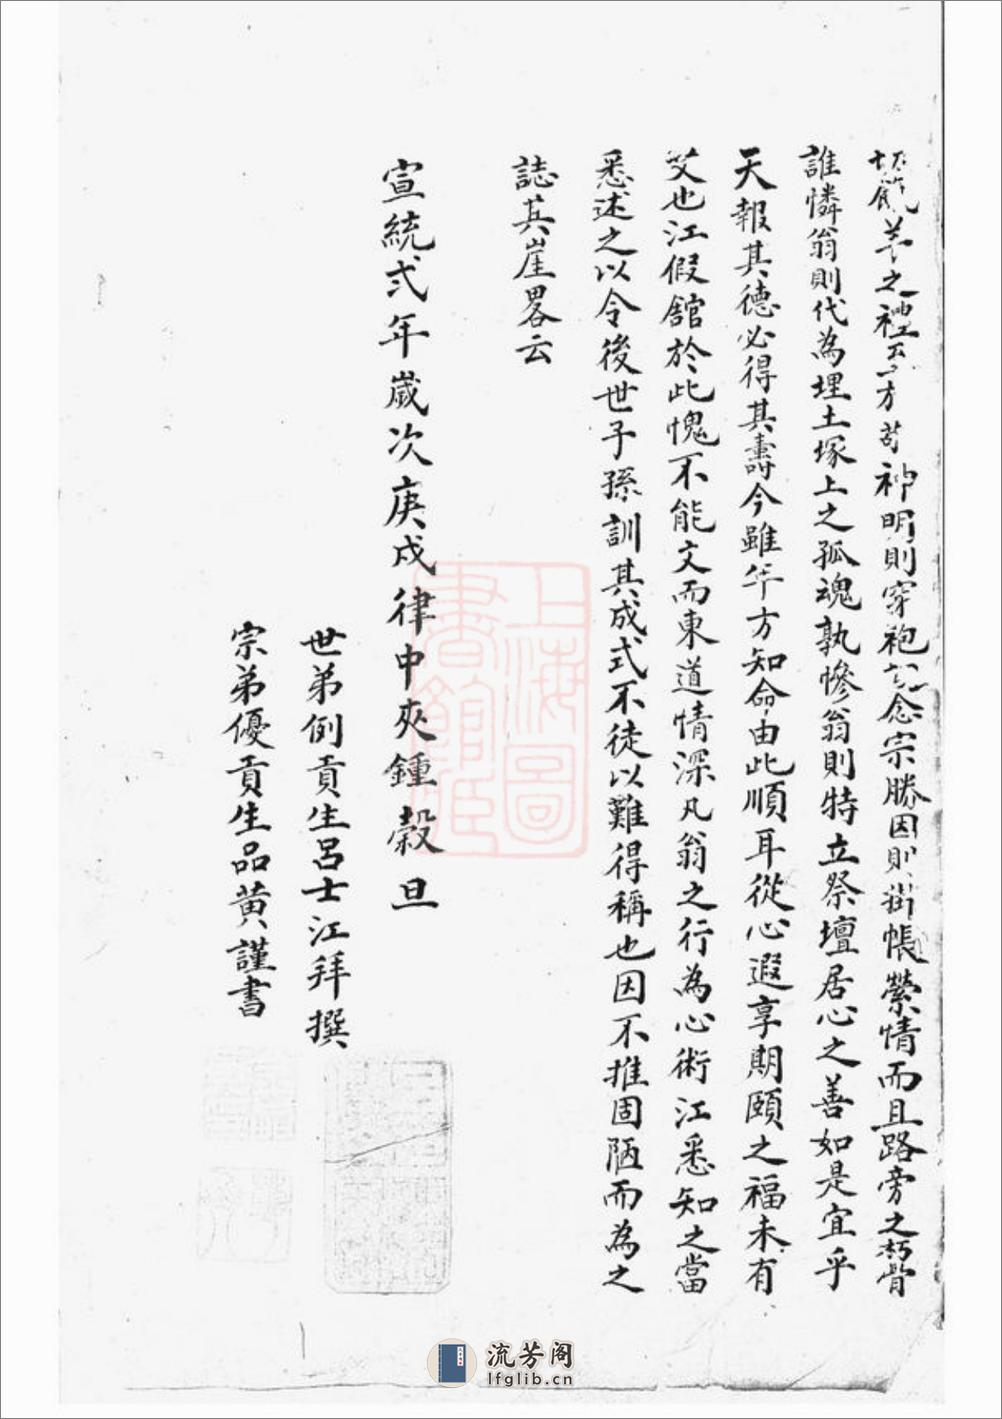 之禋
神明則穿袍
念宗勝因則掛帳縈情而且路旁之朽骨
誰憐翁則代為埋土塚上之孤魂孰慘翁則特立祭壇居心之善如是宜乎
天報其德必得其壽今雖年方知命由此順耳從心遐享期頤之福未有
艾也江假舘於此愧不能文而東道情深凡翁之行為心術江悉知之當
悉述之以令後世子孫訓其成式不徒以難得稱也因不推固陋而為之
誌其崖畧云
宣統弍年歲次庚戍律中夾鍾穀旦
世弟例貢生呂士江拜撰
宗弟優貢生品黄謹書
上海圖
書館藏
流芳阁
lfglib.cn